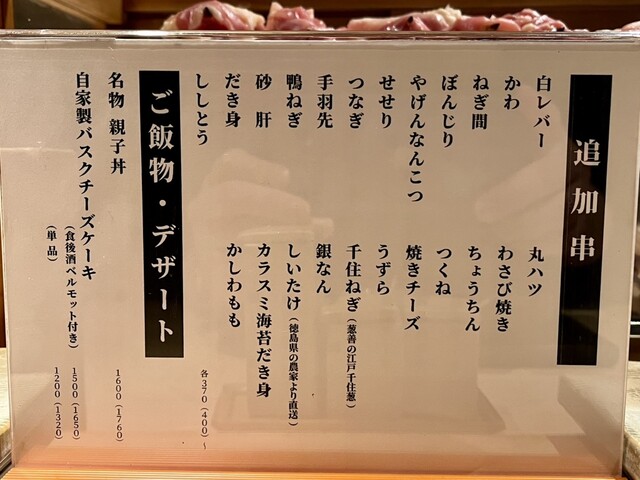 追加串
白レバー
かわ
ねぎ間
ぼんじり
やげんなんこつ
せせり
つなぎ
手羽先
鴨ねぎ
砂肝
だき身
ししとう
丸ハツ
わさび焼き
ちょうちん
つくね
焼きチーズ
うずら
千住ねぎ(葱善の江戸千住葱)
銀なん
しいたけ(徳島県の農家より直送)
カラスミ海苔だき身
かしわもも
各370(400)〜
ご飯物・デザート
名物 親子丼 1600(1760)
自家製バスクチーズケーキ
(食後酒ベルモット付き) 1500(1650)
(単品) 1200(1320)